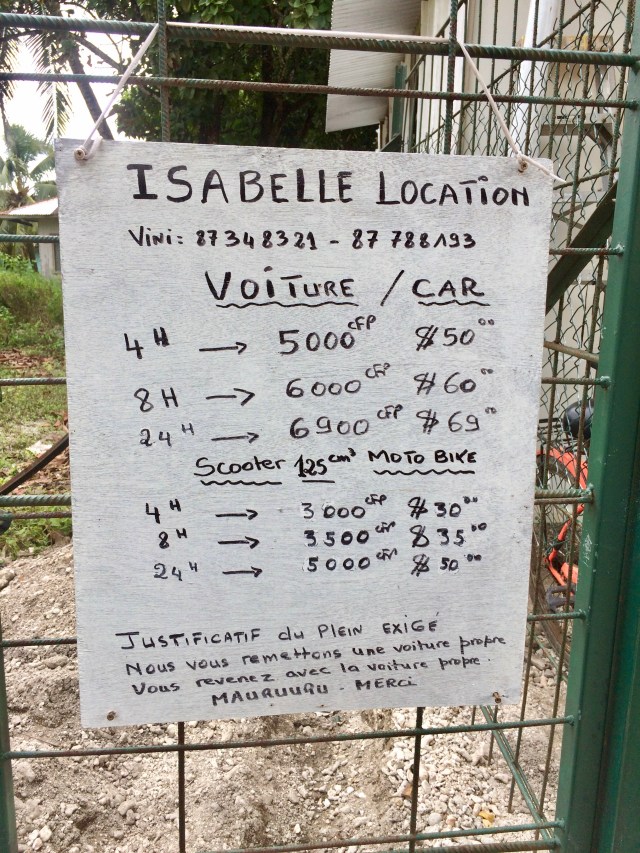 ISABELLE LOCATION
Vini: 87 34 83 21 - 87 788 193
VOITURE / CAR
4 H → 5000 CFP $50 00
8 H → 6000 CFP $60 00
24 H → 6900 CFP $69 00
Scooter 125 cm³ MOTO BIKE
4 H → 3000 CFP $30 00
8 H → 3500 CFP $35 00
24 H → 5000 CFP $50 00
JUSTIFICATIF du PLEIN EXIGÉ
Nous vous remettons une voiture propre
Vous revenez avec la voiture propre.
MAURUURU - MERCI